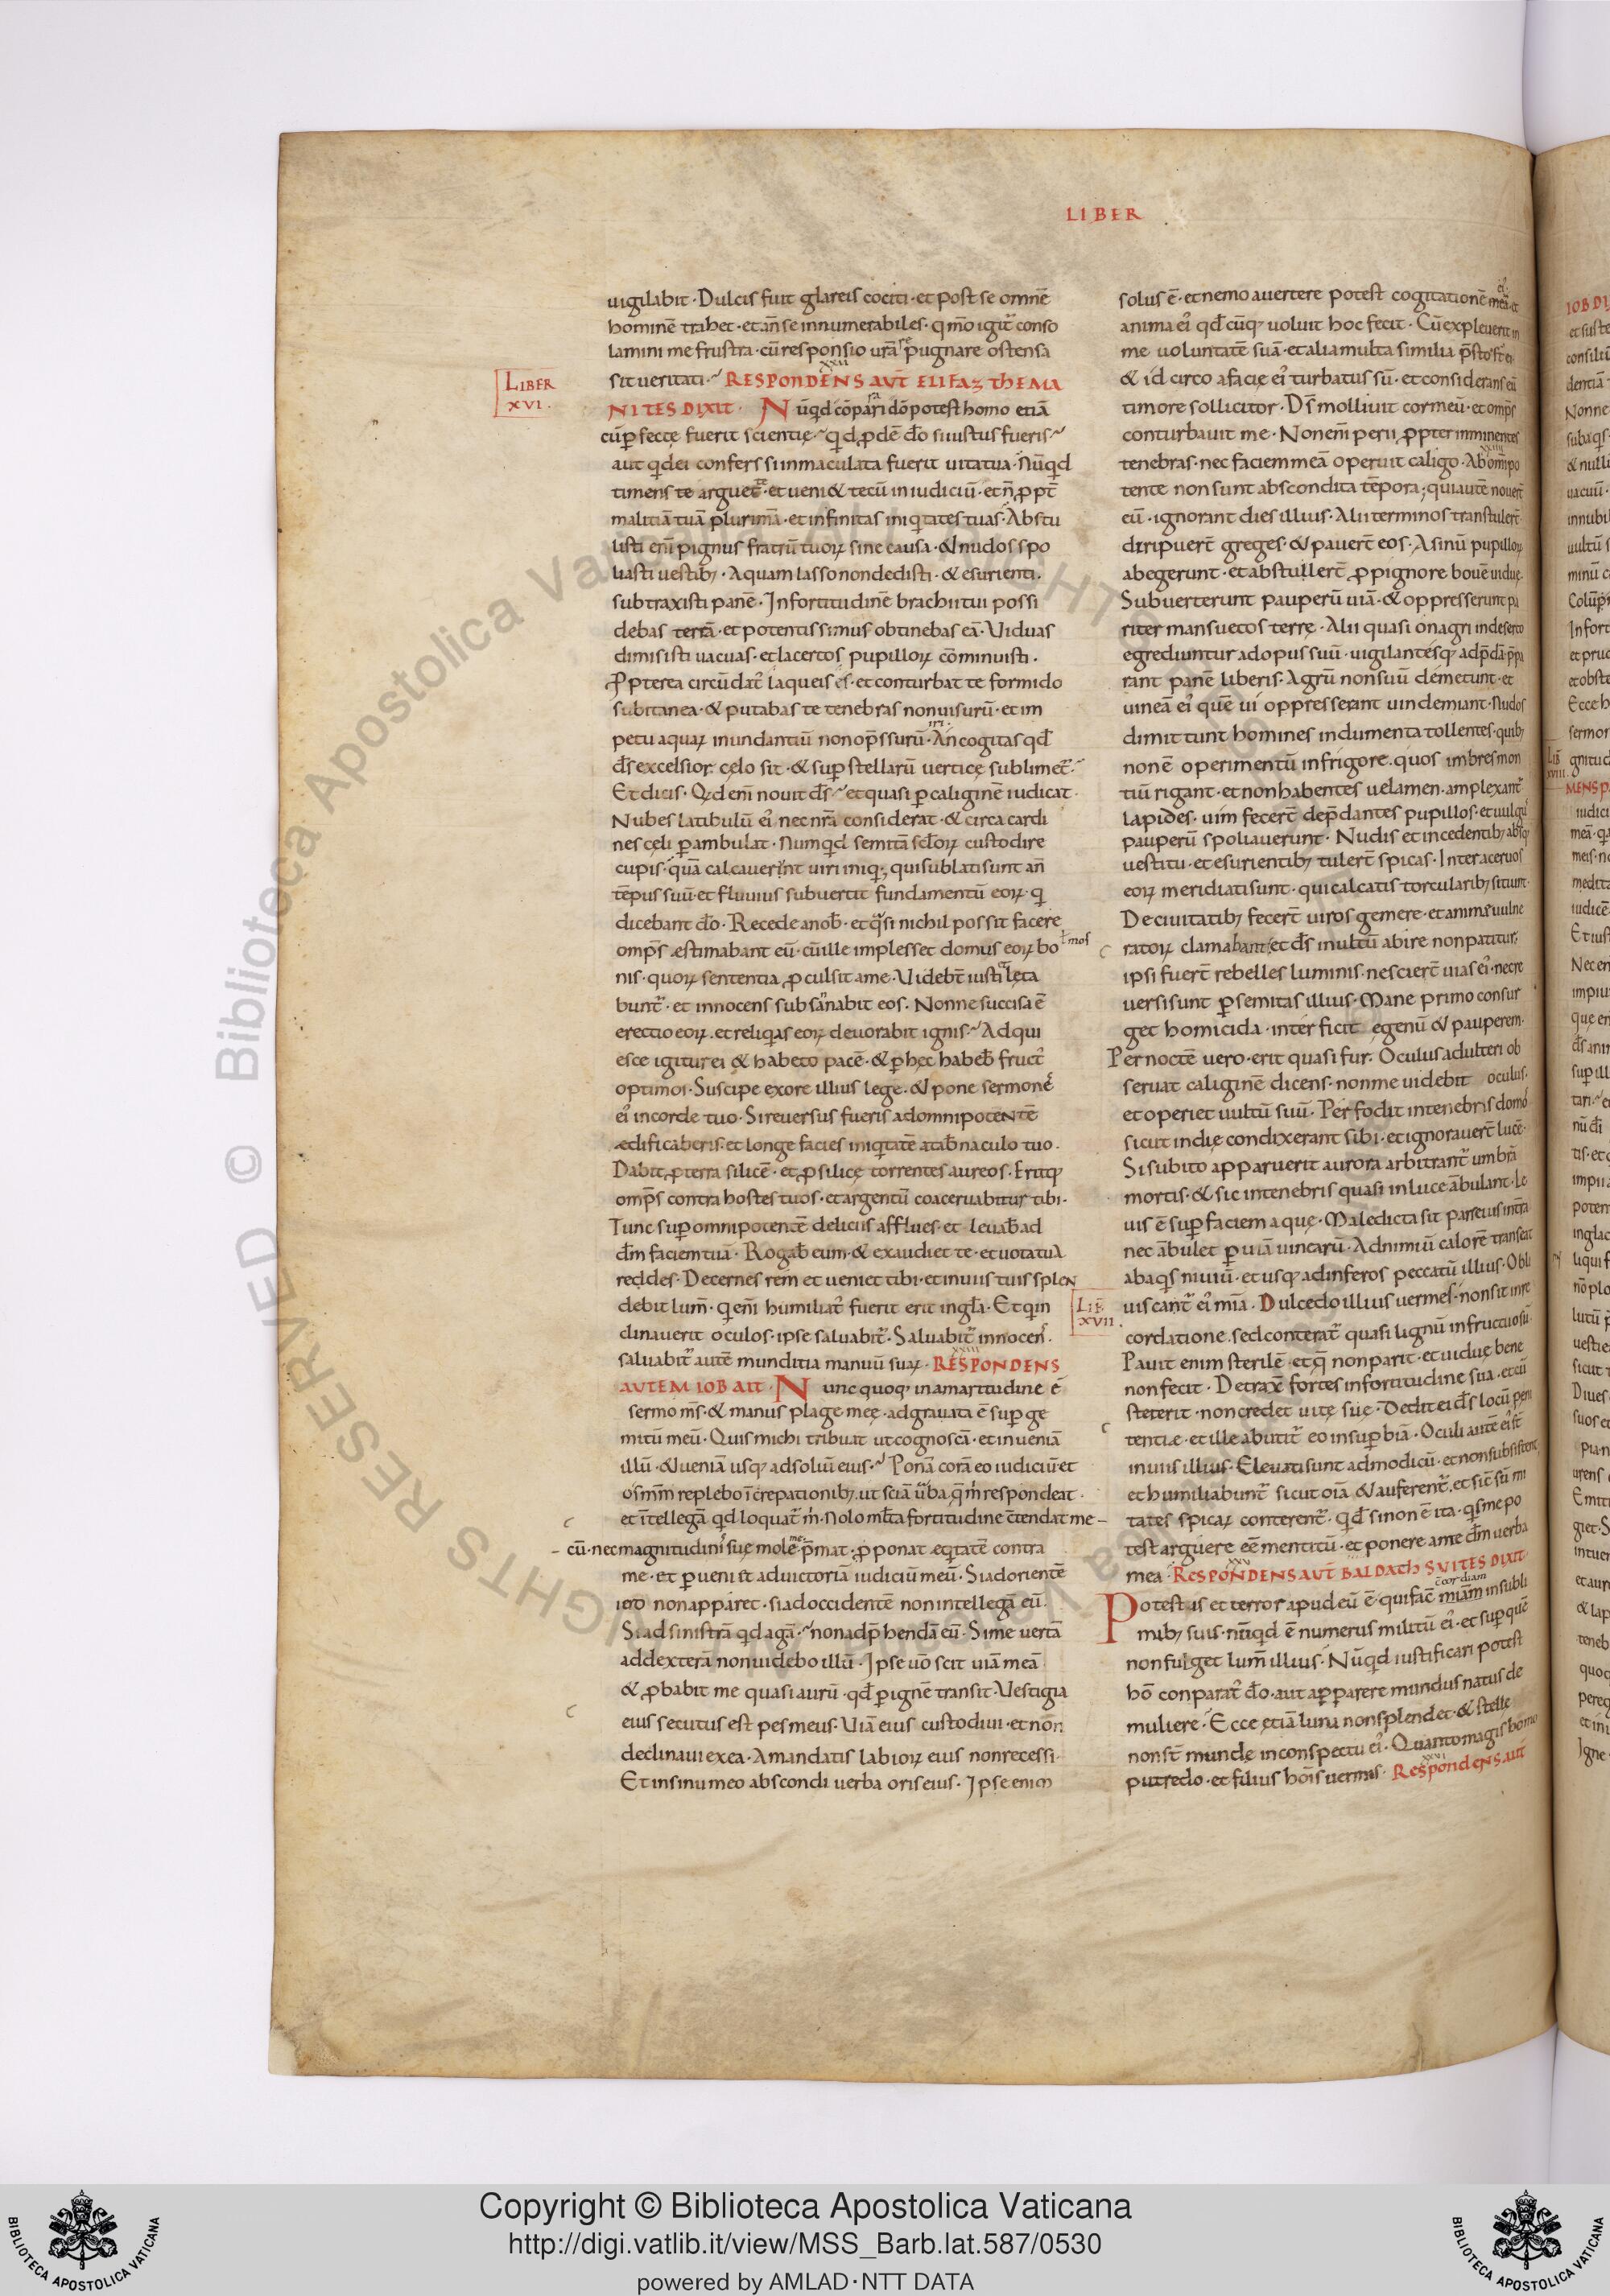 LIBER
uigilabit · Dulcis fuit glareis cociti · et post se omnē
hominē trahet · et an̄ se innumerabiles · qm̄o igit᷑ conso
lamini me frustra · cū responsio ur̄a re pugnare ostensa
xxii
LIBER
XVI.
sit ueritati · RESPONDENS AUT̄ ELIFAZ THEMA
NITES DIXIT · Nūqd cōpari dō potest homo etiā
cū ꝑfectę fuerit scientię · qd ꝓdē dō si iustus fueris
aut qd ei confers si inmaculata fuerit uita tua · Nūqd
timens te arguet · et ueni& tecū in iudiciū · et n̄ ꝓpt̄
malitiā tuā plurimā · et infinitas iniqtates tuas · Abstu
listi eni̅ pignus fratrū tuoꝝ sine causa · & nudos spo
liasti uestibꝫ · Aquam lasso non dedisti · & esurienti ·
subtraxisti panē · In fortitudinē brachii tui possi
debas terrā · et potentissimus obtinebas eā · Uiduas
dimisisti uacuas · et lacertos pupilloꝝ cōminuisti ·
Ꝓpterea circūdat᷑ laqueis es · et conturbat te formido
subitanea · & putabas te tenebras non uisurū · et im
iri
petu aquaꝝ inundantiū non op̄ssurū · An cogitas qd̄
dš excelsior cęlo sit · & sup stellarū uerticę sublimet᷑
Et dicis · Qd eni̅ nouit dš · et quasi ꝑ caliginē iudicat ·
Nubes latibulū ei᷒ nec nr̄a considerat · & circa cardi
nes cęli ꝑambulat · Numqd semitā scl̄oꝝ custodire
cupis · quā calcauerunt uiri iniqi · qui sublati sunt an̄
tēpus suū · et fluuius subuertit fundamentū eoꝝ · q
dicebant dō · Recede a nob̄ · et qsi nichil possit facere
omp̄s æstimabant eū · cū ille implesset domus eoꝝ bo
mos
nis · quoꝝ sententia ꝓcul sit a me · Uidebt̄ iusti & lęta
bunt᷑ · et innocens subsannabit eos · Nonne succisa ē
erectio eoꝝ · et reliqas eoꝝ deuorabit ignis · Adqui
esce igitur ei & habeto pacē · & ꝑ hęc habeb̄ fruct᷒
optimos · Suscipe ex ore illius legē · & pone sermonē
ei᷒ in corde tuo · Si reuersus fueris ad omnipotentē
ædificaberis · et longe facies iniqtatē a tab̄naculo tuo ·
Dabit ꝓ terra silicē · et ꝓ silicę torrentes aureos · Eritqꝫ
omp̄s contra hostes tuos · et argentū coaceruabitur tibi ·
Tunc sup omnipotentē deliciis afflues · et leuab̄ ad
dm̄ faciem tuā · Rogab̄ eum · & exaudiet te · et uota tua
reddes · Decernes rem et ueniet tibi · et in uiis tuis splen
debit lum̄ · q eni̅ humiliat᷒ fuerit erit in gl̄a · Et q in
dinauerit oculos · ipse saluabit᷑ · Saluabit᷑ innocens ·
xxiii
saluabit᷑ autē munditia manuū suaꝝ · RESPONDENS
AUTEM IOB AIT · Nunc quoqꝫ in amaritudine ē
sermo ms̄ · & manus plage męę · adgrauata ē sup ge
mitū meū · Quis michi tribuat ut cognoscā · et inueniā
illū · & ueniā usqꝫ ad soliū eius · Ponā corā eo iudiciū et
os mm̄ replebo īcrepationibꝫ · ut sciā uerba q̄ m respondeat ·
et ītellegā qd loquat᷑ m · Nolo ml̄ta fortitudine c̄tendat me-
-cū · nec magnitudinis suę mole me p̄mat · ꝓponat eqtatē contra
me · et ꝑueniat ad uictoriā iudiciū meū · Si ad orientē
iero non apparet · si ad occidentē non intellegā eū ·
Si ad sinistrā qd agā · non adp̄hendā eū · Si me uertā
ad dexterā non uidebo illū · Ipse uō scit uiā meā
& ꝓbabit me quasi aurū · qd̄ ꝑ ignē transit · Uestigia
eius secutus est pes meus · Uiā eius custodiui · et non
declinaui ex ea · A mandatis labioꝝ eius non recessi ·
Et in sinu meo abscondi uerba oris eius · Ipse enim
solus ē · et nemo auertere potest cogitationē ei᷒ mea · et
anima ei᷒ qd̄ cūqꝫ uoluit hoc fecit · Cū expleuerit in
me uoluntatē suā · et alia multa similia p̄sto st̄ ei
& id circo a facię ei᷒ turbatus sū · et considerans eū
timore sollicitor · Dš molliuit cor meū · et omp̄s
conturbauit me · Non eni̅ perii ꝓpter imminentes
xxiiii
tenebras · nec faciem meā operuit caligo · Ab omipo
tente non sunt abscondita tēpora · qui autē nouert̄
eū · ignorant dies illius · Alii terminos transtulert̄
diripuert̄ greges · & pauert̄ eos · Asinū pupilloꝝ
abegerunt · et abstullert̄ ꝓ pignore bouē uiduę ·
Subuerterunt pauperū uiā · & oppresserunt pa
riter mansuetos terrę · Alii quasi onagri in deserto
egrediuntur ad opus suū · uigilantesqꝫ ad p̄dā p̄pa
rant panē liberis · Agrū non suū demetunt · et
uineā ei᷒ quē ui oppresserint uindemiant · Nudos
dimittunt homines indumenta tollentes · quibꝫ
non ē operimentū in frigore · quos imbres mon
tiū rigant · et non habentes uelamen · amplexant᷑
lapides · uim fecert̄ dep̄dantes pupillos · et uulgū
pauperū spoliauerunt · Nudis et incedentibꝫ absqꝫ
uestitu · et esurientibꝫ tulert̄ spicas · Inter aceruos
eoꝝ meridiati sunt · qui calcatis torcularibꝫ sitiunt ·
De ciuitatibꝫ fecert̄ uiros gemere · et anima uulne
ratoꝝ clamabant · et dš inultū abire non patitur ·
ipsi fuert̄ rebelles luminis · nesciert̄ uias ei᷒ · nec re
uersi sunt ꝑ semitas illius · Mane primo consur
get homicida · interficit egenū & pauperem ·
Per noctē uero · erit quasi fur · Oculus adulteri ob
seruat caliginē dicens · non me uidebit oculus ·
et operiet uultū suū · Perfodit in tenebris domos
sicut in dię condixerant sibi · et ignorauert̄ lucē ·
Si subito apparuerit aurora arbitrant᷑ umbrā
mortis · & sic in tenebris quasi in luce ābulant · Le
uis ē sup faciem aque · Maledicta sit pars eius in tr̄a
nec ābulet ꝑ uiā uinearū · Ad nimiū calorē transeat
ab aqs niuiū · et usqꝫ ad inferos peccatū illius · Obli
LIB̄
XVII.
uiscant᷑ ei᷒ mi̅a · Dulcedo illius uermes · non sit in re
cordatione · sed conterat᷑ quasi lignū infructuosū ·
Pauit enim sterilē · et q̄ non parit · et uiduę bene
non fecit · Detraxē fortes in fortitudine sua · et cū
steterit · non credet uitę suę · Dedit ei dš locū peni
tentiæ · et ille abutit᷑ eo in supbiā · Oculi autē ei᷒ st̄
in uiis illius · Eleuati sunt ad modicū · et non subsistent
et humiliabunt᷑ sicut oi̅a & auferent᷑ · et sic̄ sūmi
tates spicaꝝ conterent᷑ · qd̄ si non ē ita · qs me po
test arguere eē mentitū · et ponere ante dm̄ uerba
xxv
mea · RESPONDENS AUT̄ BALDACH SUITES DIXIT
c̄cordiam
Potestas et terror apud eū ē · qui fac̄ miā̄m in subli
mibꝫ suis · nūqd ē numerus militū ei᷒ · et sup quē
non fulget lum̄ illius · Nūqd iustificari potest
hō conparat᷒ dō · aut apparere mundus natus de
muliere · Ecce ętiā luna non splendet · & stelle
non st̄ mundę in conspectu ei᷒ · Quanto magis homo
xxvi
putredo · et filius hoi̅s uermis · RESPONDENS AUT̄
© Biblioteca Apostolica Vaticana ALL RIGHTS RESERVED
Copyright © Biblioteca Apostolica Vaticana
http://digi.vatlib.it/view/MSS_Barb.lat.587/0530
powered by AMLAD·NTT DATA
BIBLIOTECA APOSTOLICA VATICANA
BIBLIOTECA APOSTOLICA VATICANA